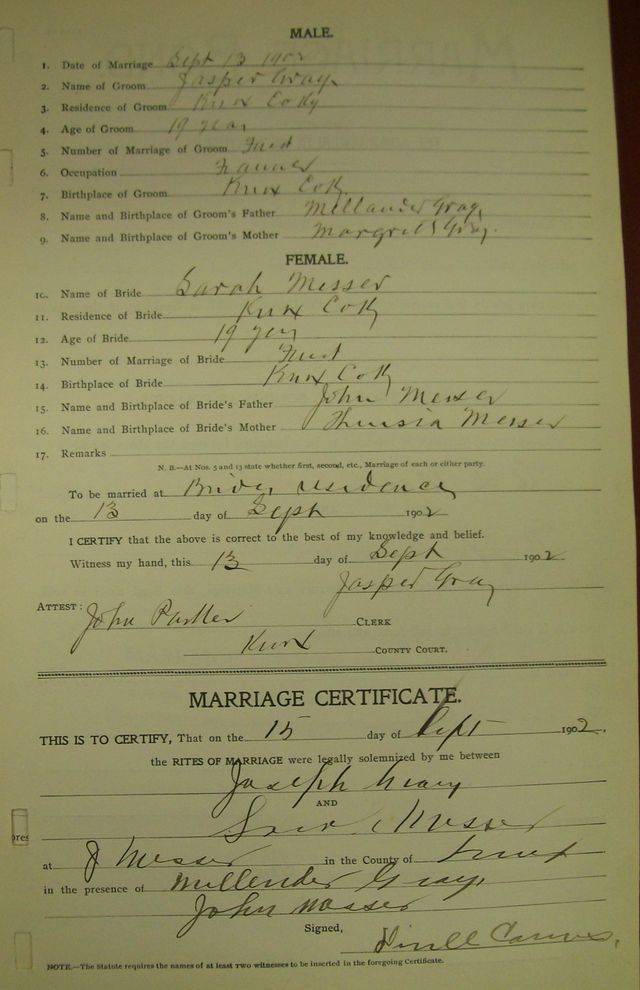 MALE.
1. Date of Marriage Sept 13 1902
2. Name of Groom Jasper Gray
3. Residence of Groom Knox Co Ky
4. Age of Groom 19 year
5. Number of Marriage of Groom First
6. Occupation Farmer
7. Birthplace of Groom Knox Co Ky
8. Name and Birthplace of Groom's Father Millander Gray
9. Name and Birthplace of Groom's Mother Margret Gray
FEMALE.
10. Name of Bride Sarah Messer
11. Residence of Bride Knox Co Ky
12. Age of Bride 19 year
13. Number of Marriage of Bride First
14. Birthplace of Bride Knox Co Ky
15. Name and Birthplace of Bride's Father John Messer
16. Name and Birthplace of Bride's Mother Messer
17. Remarks
N. B.—At Nos. 5 and 13 state whether first, second, etc., Marriage of each or either party.
To be married at Brides residence
on the 13 day of Sept 1902
I CERTIFY that the above is correct to the best of my knowledge and belief.
Witness my hand, this 13 day of Sept 1902
Jasper Gray
ATTEST: John Parker CLERK
Knox COUNTY COURT.
MARRIAGE CERTIFICATE.
THIS IS TO CERTIFY, That on the 15 day of Sept 1902.
the RITES OF MARRIAGE were legally solemnized by me between
Joseph Gray
AND
Messer
pres
at J Messer in the County of Knox
in the presence of Millender Gray
John Messer
Signed,
NOTE.—The Statute requires the names of at least Two witnesses to be inserted in the foregoing Certificate.